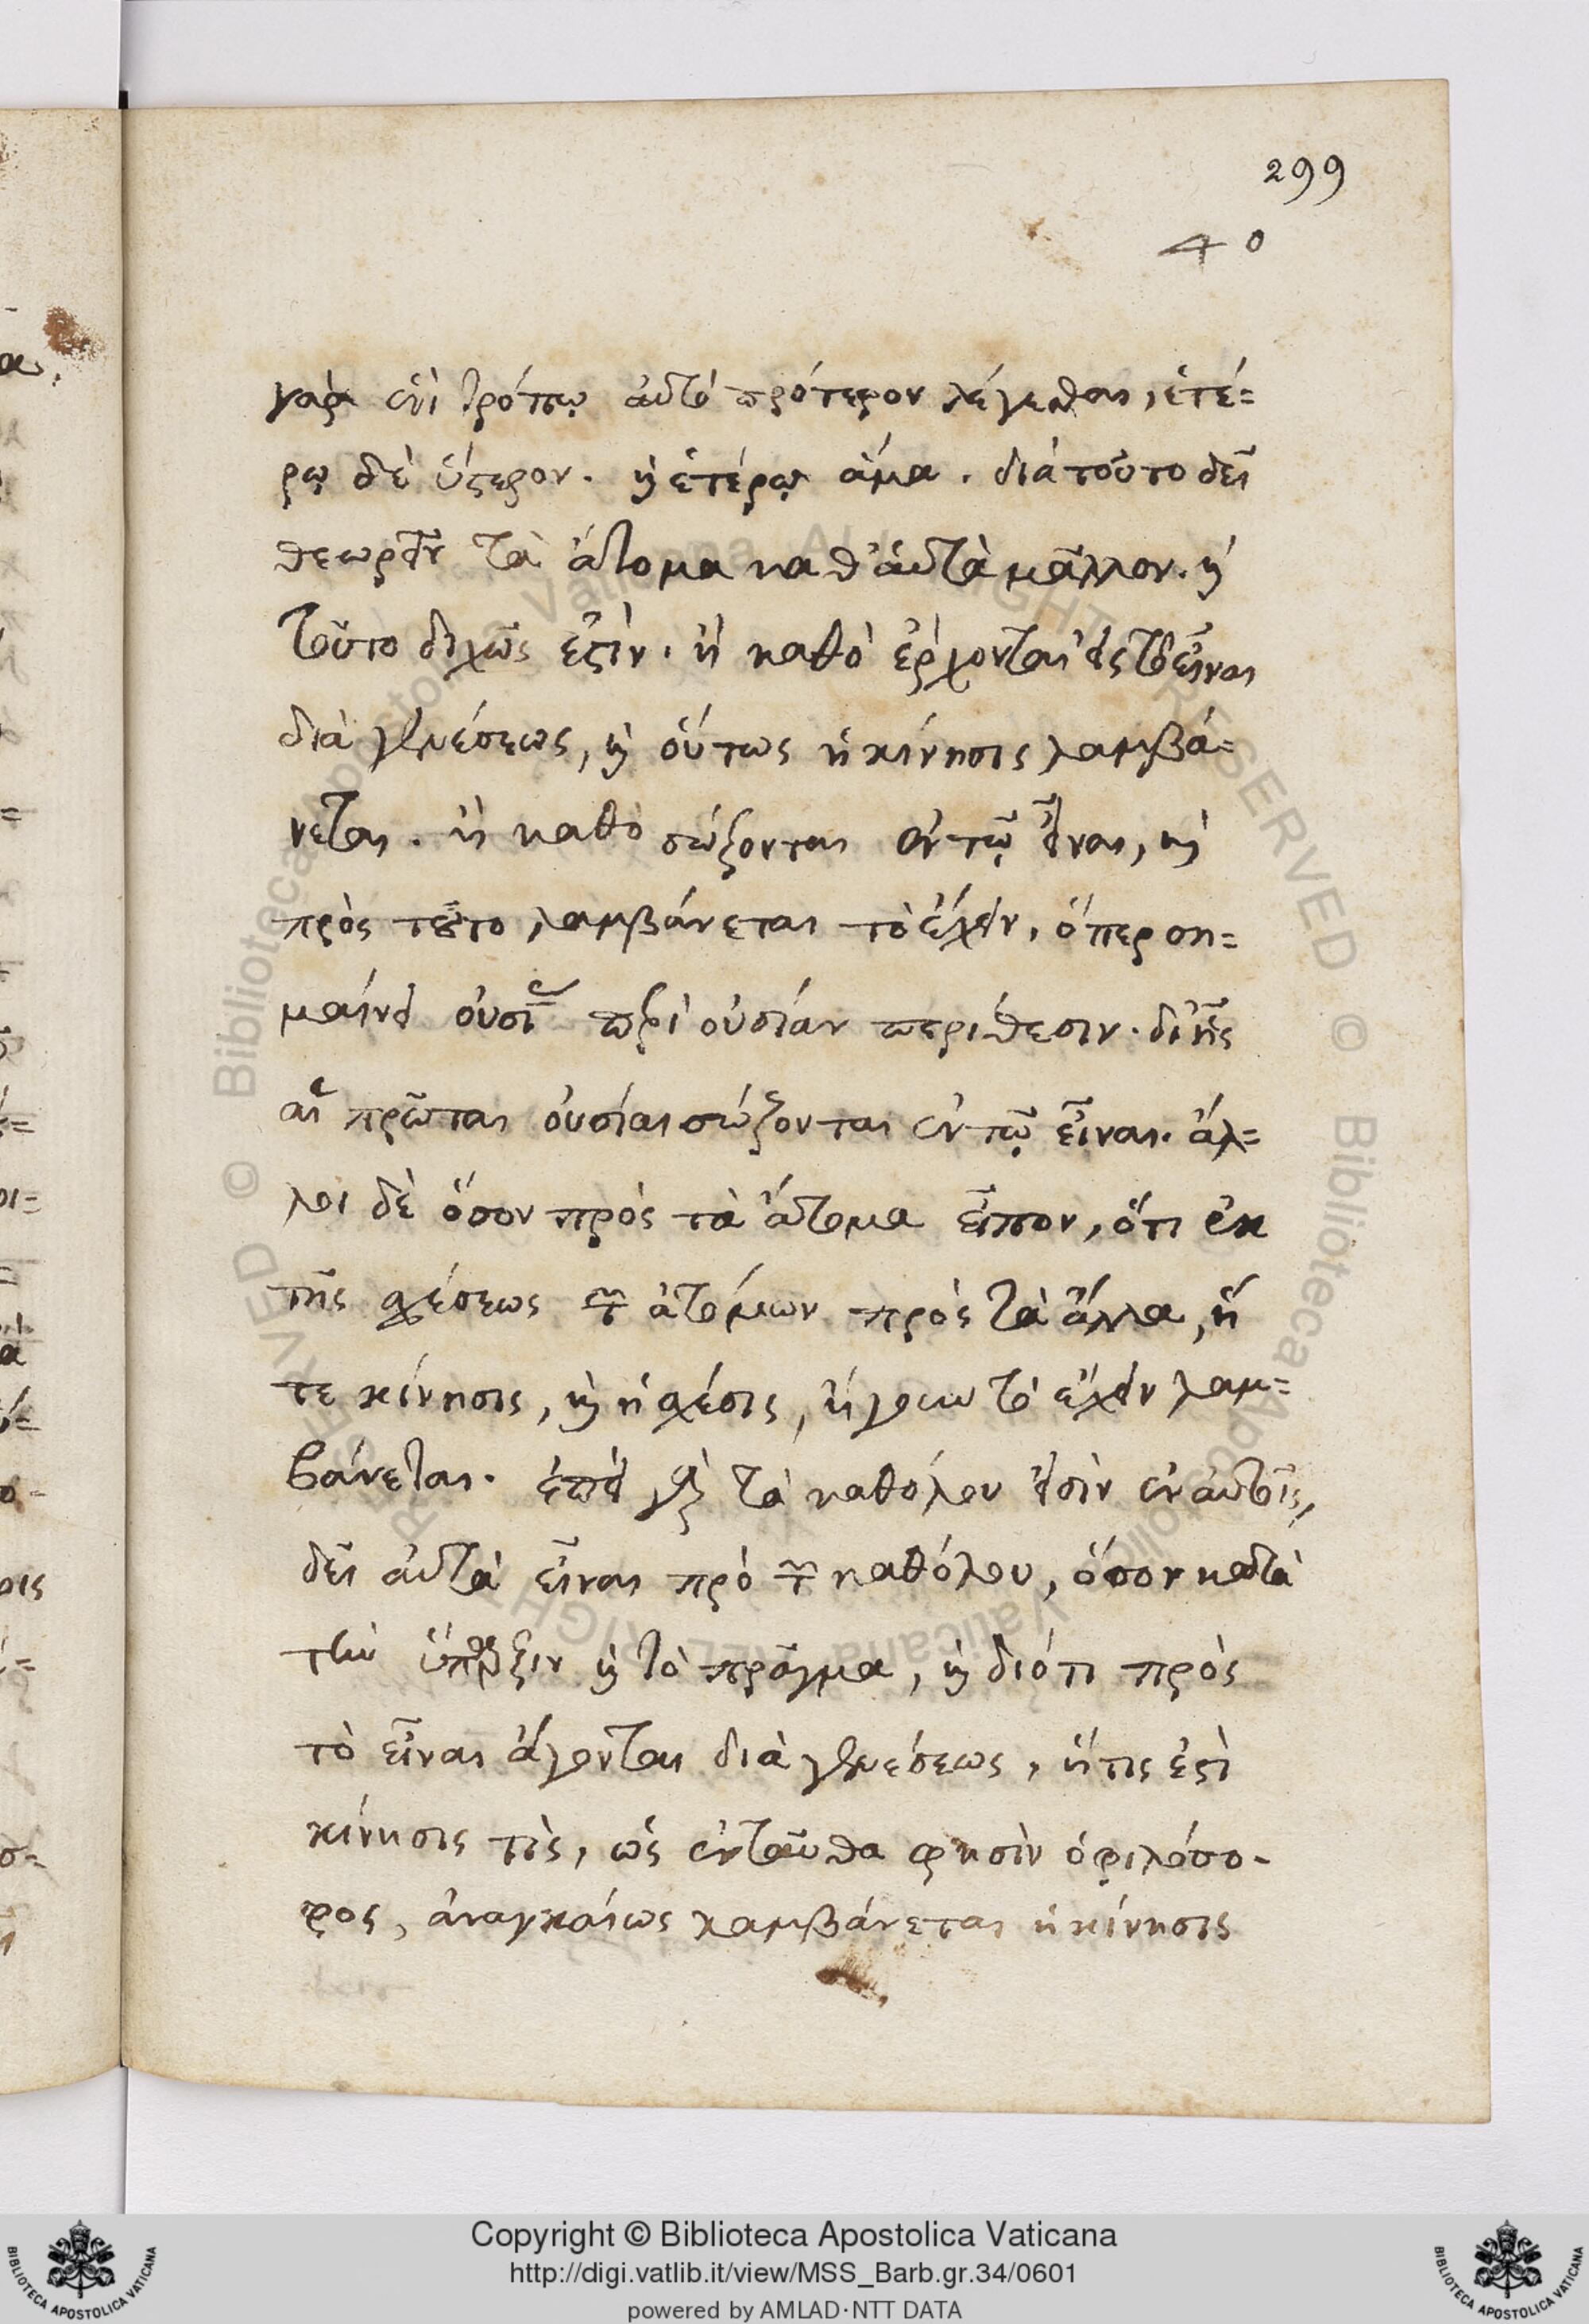 299
40
γὰρ ἑνὶ τρόπῳ αὐτὸ πρότερον λέγεσθαι, ἑτέ=
ρῳ δὲ ὕστερον. καὶ ἑτέρῳ ἅμα. διατοῦτο δεῖ
θεωρεῖν τὰ ἄτομα καθ' αὑτὰ μᾶλλον. καὶ
τοῦτο διχῶς ἐστίν. ἢ καθὸ ἔρχονται εἰς τὸ εἶναι
διὰ γενέσεως, καὶ οὕτως ἡ κίνησις λαμβά=
νεται. ἢ καθὸ σώζονται ἐν τῷ εἶναι, καὶ
πρὸς τοῦτο λαμβάνεται τὸ ἔχειν, ὅπερ ση=
μαίνει οὐσιῶν περὶ οὐσίαν περίθεσιν. δι' ἧς
αἱ πρῶται οὐσίαι σώζονται ἐν τῷ εἶναι. ἄλ=
λοι δὲ ὅσον πρὸς τὰ ἄτομα εἶπον, ὅτι ἐκ
τῆς σχέσεως τῶν ἀτόμων πρὸς τὰ ἄλλα, ἥ
τε κίνησις, καὶ ἡ σχέσις, ἤγουν τὸ ἔχειν λαμ=
βάνεται. ἐπεὶ γὰρ τὰ καθόλου εἰσὶν ἐν αὐτοῖς,
δεῖ αὐτὰ εἶναι πρὸ τῶν καθόλου, ὅσον κατὰ
τὴν ὕπαρξιν καὶ τὸ πρᾶγμα, καὶ διότι πρὸς
τὸ εἶναι ἄγονται διὰ γενέσεως, ἥτις ἐστὶ
κίνησις τὶς, ὡς ἐνταῦθα φησὶν ὁ φιλόσο-
φος, ἀναγκαίως λαμβάνεται ἡ κίνησις
Copyright © Biblioteca Apostolica Vaticana
http://digi.vatlib.it/view/MSS_Barb.gr.34/0601
powered by AMLAD·NTT DATA